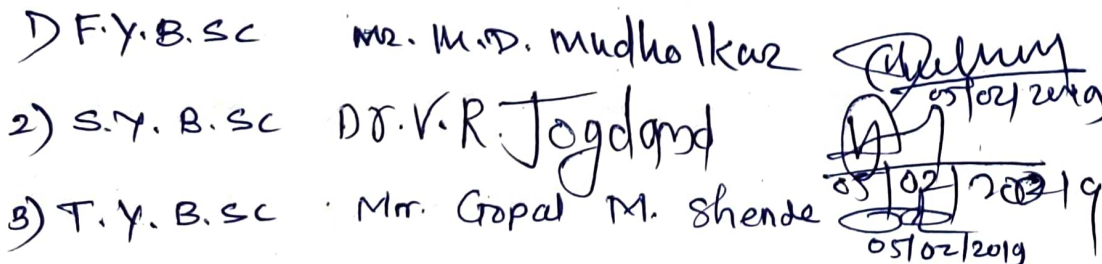 1) F.Y.B.SC Mr. M.D. Mudholkar
05/02/2019
2) S.Y. B.SC Dr. V.R. Jogdand
05/02/2019
3) T.Y. B.SC Mr. Gopal M. Shende
05/02/2019